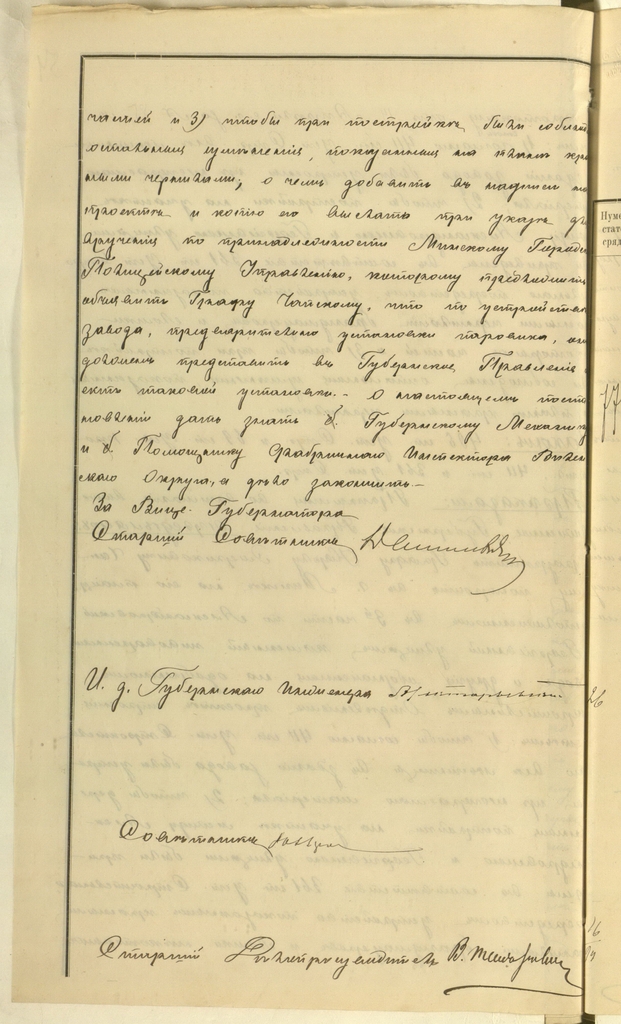 и 3) чтобы при постройке были соблю
остальныя условия, показанныя на
ными чернилами; о чемъ добавить въ надписи на
проектѣ и копію его выслать при указѣ для
врученія по принадлежности Минскому Городс
Полицейскому Управленію, которому предложить
объявить Графу Чапскому, что по устройствѣ
завода, предварительно установки паровика, онъ
долженъ представить въ Губернское Правленіе
ектъ таковой установки. – О настоящемъ поста
новленіи дать знать Губернскому Механику
и Помощнику Фабричнаго Инспектора Вилен
скаго Округа, а дѣло закончить –
За Вице-Губернатора
Старшій Совѣтникъ
И. д. Губернскаго Инженера
Совѣтникъ
Старшій Дѣлопроизводитель В.
Нуме
стате
сряд
77
26
16